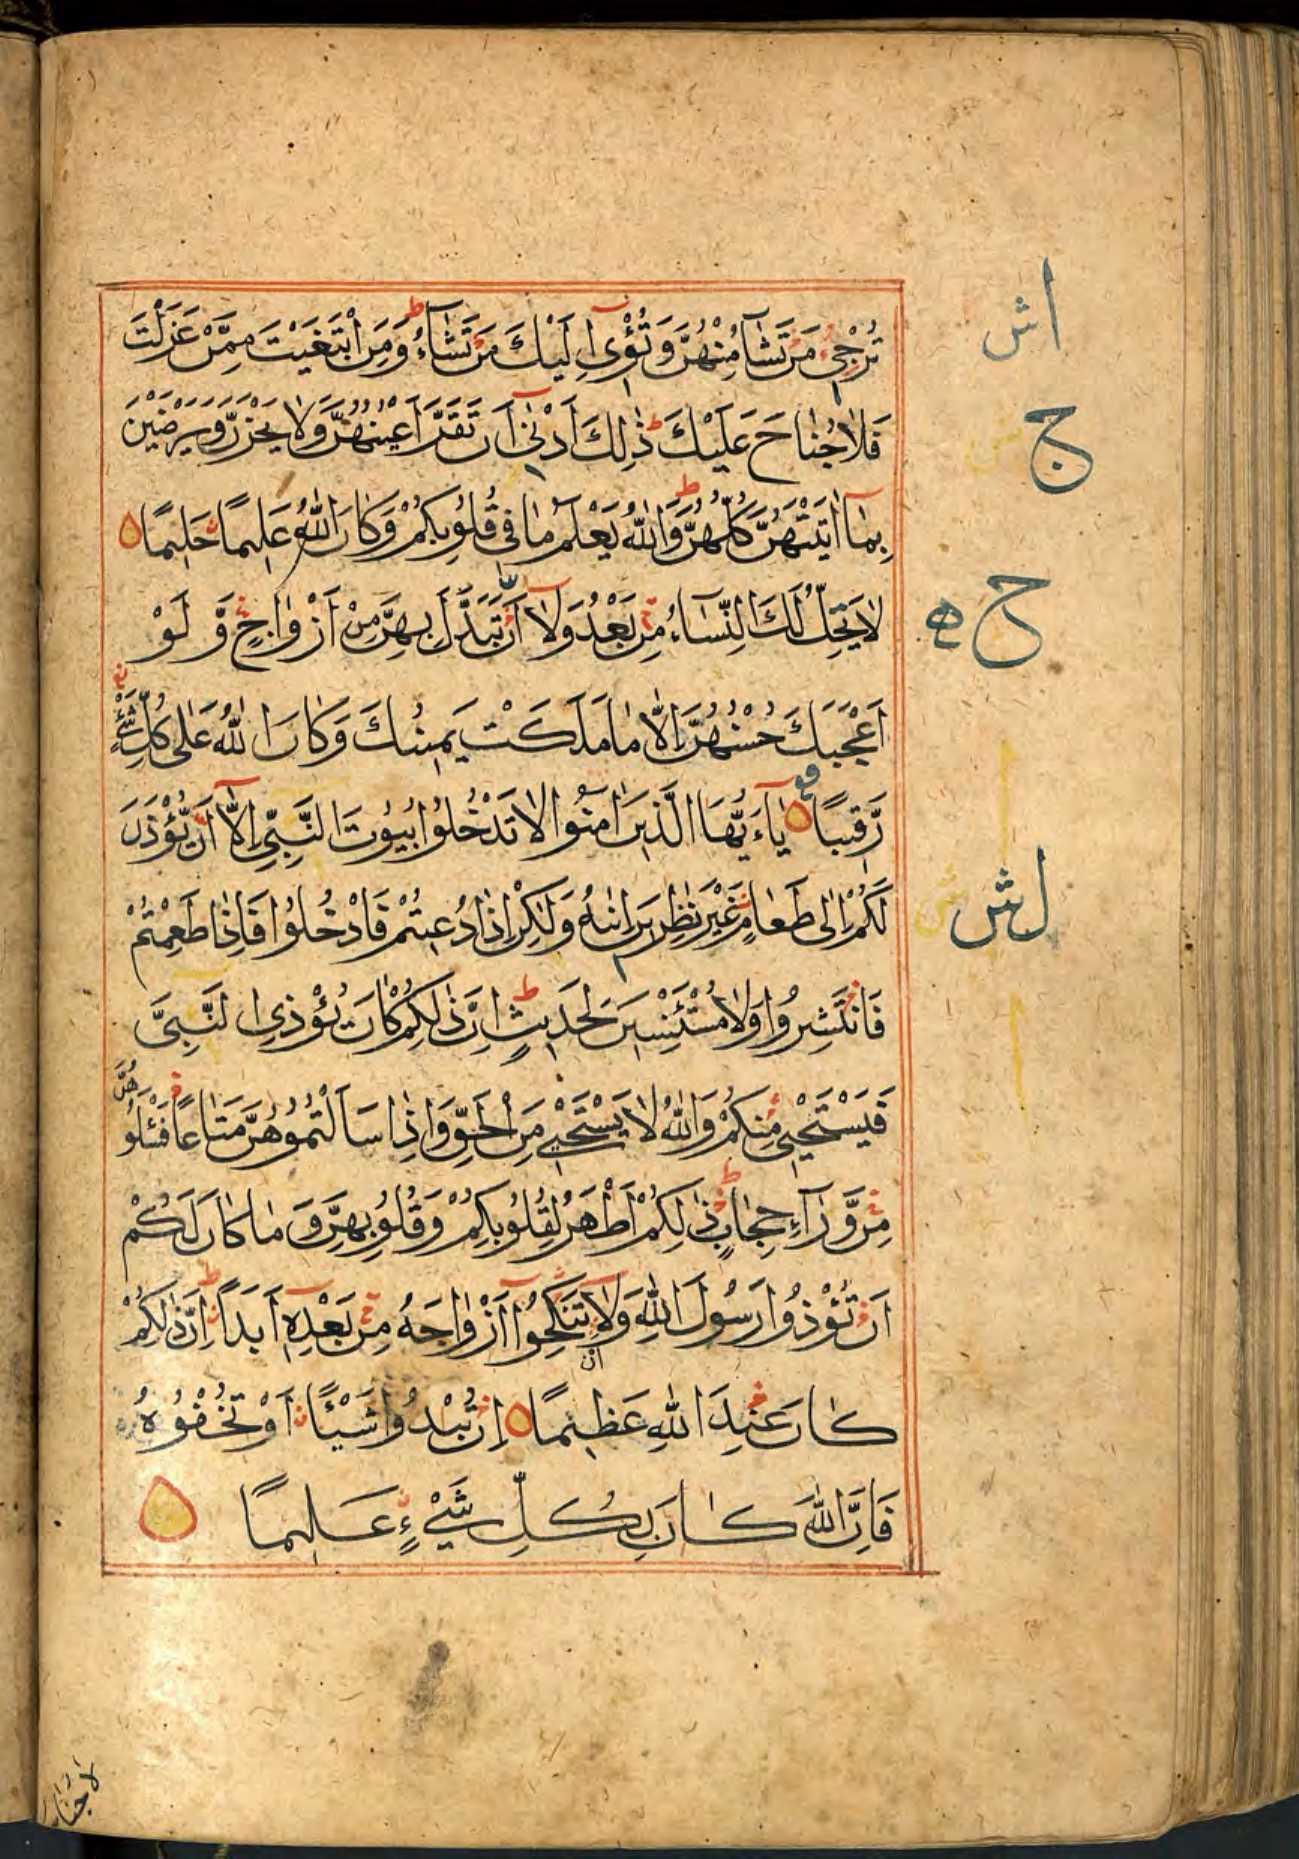 تُرْجِيْ مَنْ تَشَآءُ مِنْهُنَّ وَتُؤْوِىْ اِلَيْكَ مَنْ تَشَآءُ وَمَنِ ابْتَغَيْتَ مِمَّنْ عَزَلْتَ
فَلَا جُنَاحَ عَلَيْكَ ذٰلِكَ اَدْنٰى اَنْ تَقَرَّ اَعْيُنُهُنَّ وَلَا يَحْزَنَّ وَيَرْضَيْنَ
بِمَا اٰتَيْتَهُنَّ كُلُّهُنَّ وَاللهُ يَعْلَمُ مَا فِى قُلُوْبِكُمْ وَكَانَ اللهُ عَلِيْمًا حَلِيْمًا
لَا يَحِلُّ لَكَ النِّسَآءُ مِنْ بَعْدُ وَلَا اَنْ تَبَدَّلَ بِهِنَّ مِنْ اَزْوَاجٍ وَّلَوْ
اَعْجَبَكَ حُسْنُهُنَّ اِلَّا مَا مَلَكَتْ يَمِيْنُكَ وَكَانَ اللهُ عَلٰى كُلِّ شَيْءٍ
رَّقِيْبًا يَآءَيُّهَا الَّذِيْنَ اٰمَنُوْا لَا تَدْخُلُوْا بُيُوْتَ النَّبِيِّ اِلَّا اَنْ يُّؤْذَنَ
لَكُمْ اِلٰى طَعَامٍ غَيْرَ نٰظِرِيْنَ اِنٰىهُ وَلٰكِنْ اِذَا دُعِيْتُمْ فَادْخُلُوْا فَاِذَا طَعِمْتُمْ
فَانْتَشِرُوْا وَلَا مُسْتَئْنِسِيْنَ لِحَدِيْثٍ اِنَّ ذٰلِكُمْ كَانَ يُؤْذِى النَّبِيَّ
فَيَسْتَحْيٖ مِنْكُمْ وَاللهُ لَا يَسْتَحْيٖ مِنَ الْحَقِّ وَاِذَا سَاَلْتُمُوْهُنَّ مَتَاعًا فَسْئَلُوْهُنَّ
مِنْ وَّرَآءِ حِجَابٍ ذٰلِكُمْ اَطْهَرُ لِقُلُوْبِكُمْ وَقُلُوْبِهِنَّ وَمَا كَانَ لَكُمْ
اَنْ تُؤْذُوْا رَسُوْلَ اللهِ وَلَا تَنْكِحُوْا اَزْوَاجَهُ مِنْ بَعْدِهٖ اَبَدًا اِنَّ ذٰلِكُمْ
ان
كَانَ عِنْدَ اللهِ عَظِيْمًا اِنْ تُبْدُوْا شَيْئًا اَوْ تُخْفُوْهُ
فَاِنَّ اللهَ كَانَ بِكُلِّ شَيْءٍ عَلِيْمًا
اش
ج
ح ه
لش
لا جناح